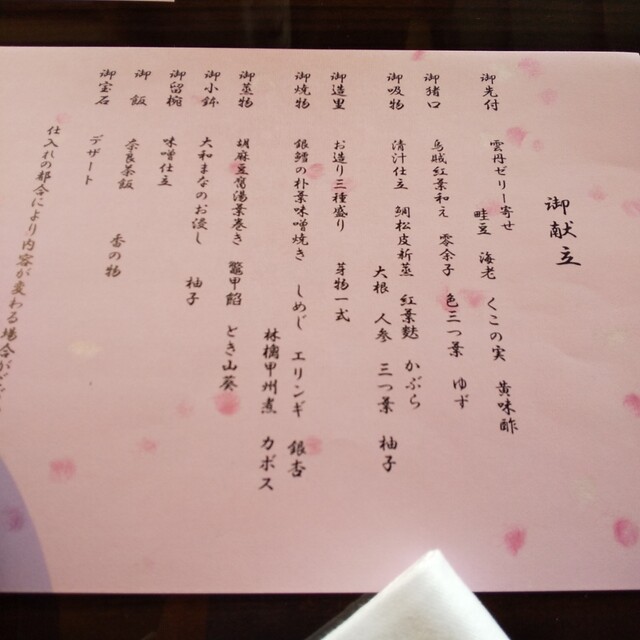 御献立
御先付 雲丹ゼリー寄せ
畦豆 海老 くこの実 黄味酢
御猪口 烏賊紅葉和え 零余子 色三つ葉 ゆず
御吸物 清汁仕立 鯛松皮新蒸 紅葉麩 かぶら
大根 人参 三つ葉 柚子
御造里 お造り三種盛り 芽物一式
御焼物 銀鱈の朴葉味噌焼き しめじ エリンギ 銀杏
林檎甲州煮 カボス
御蒸物 胡麻豆富湯葉巻き 鼈甲餡 とき山葵
御小鉢 大和まなのお浸し 柚子
御留椀 味噌仕立
御飯 奈良茶飯 香の物
御宝石 デザート
仕入れの都合により内容が変わる場合が